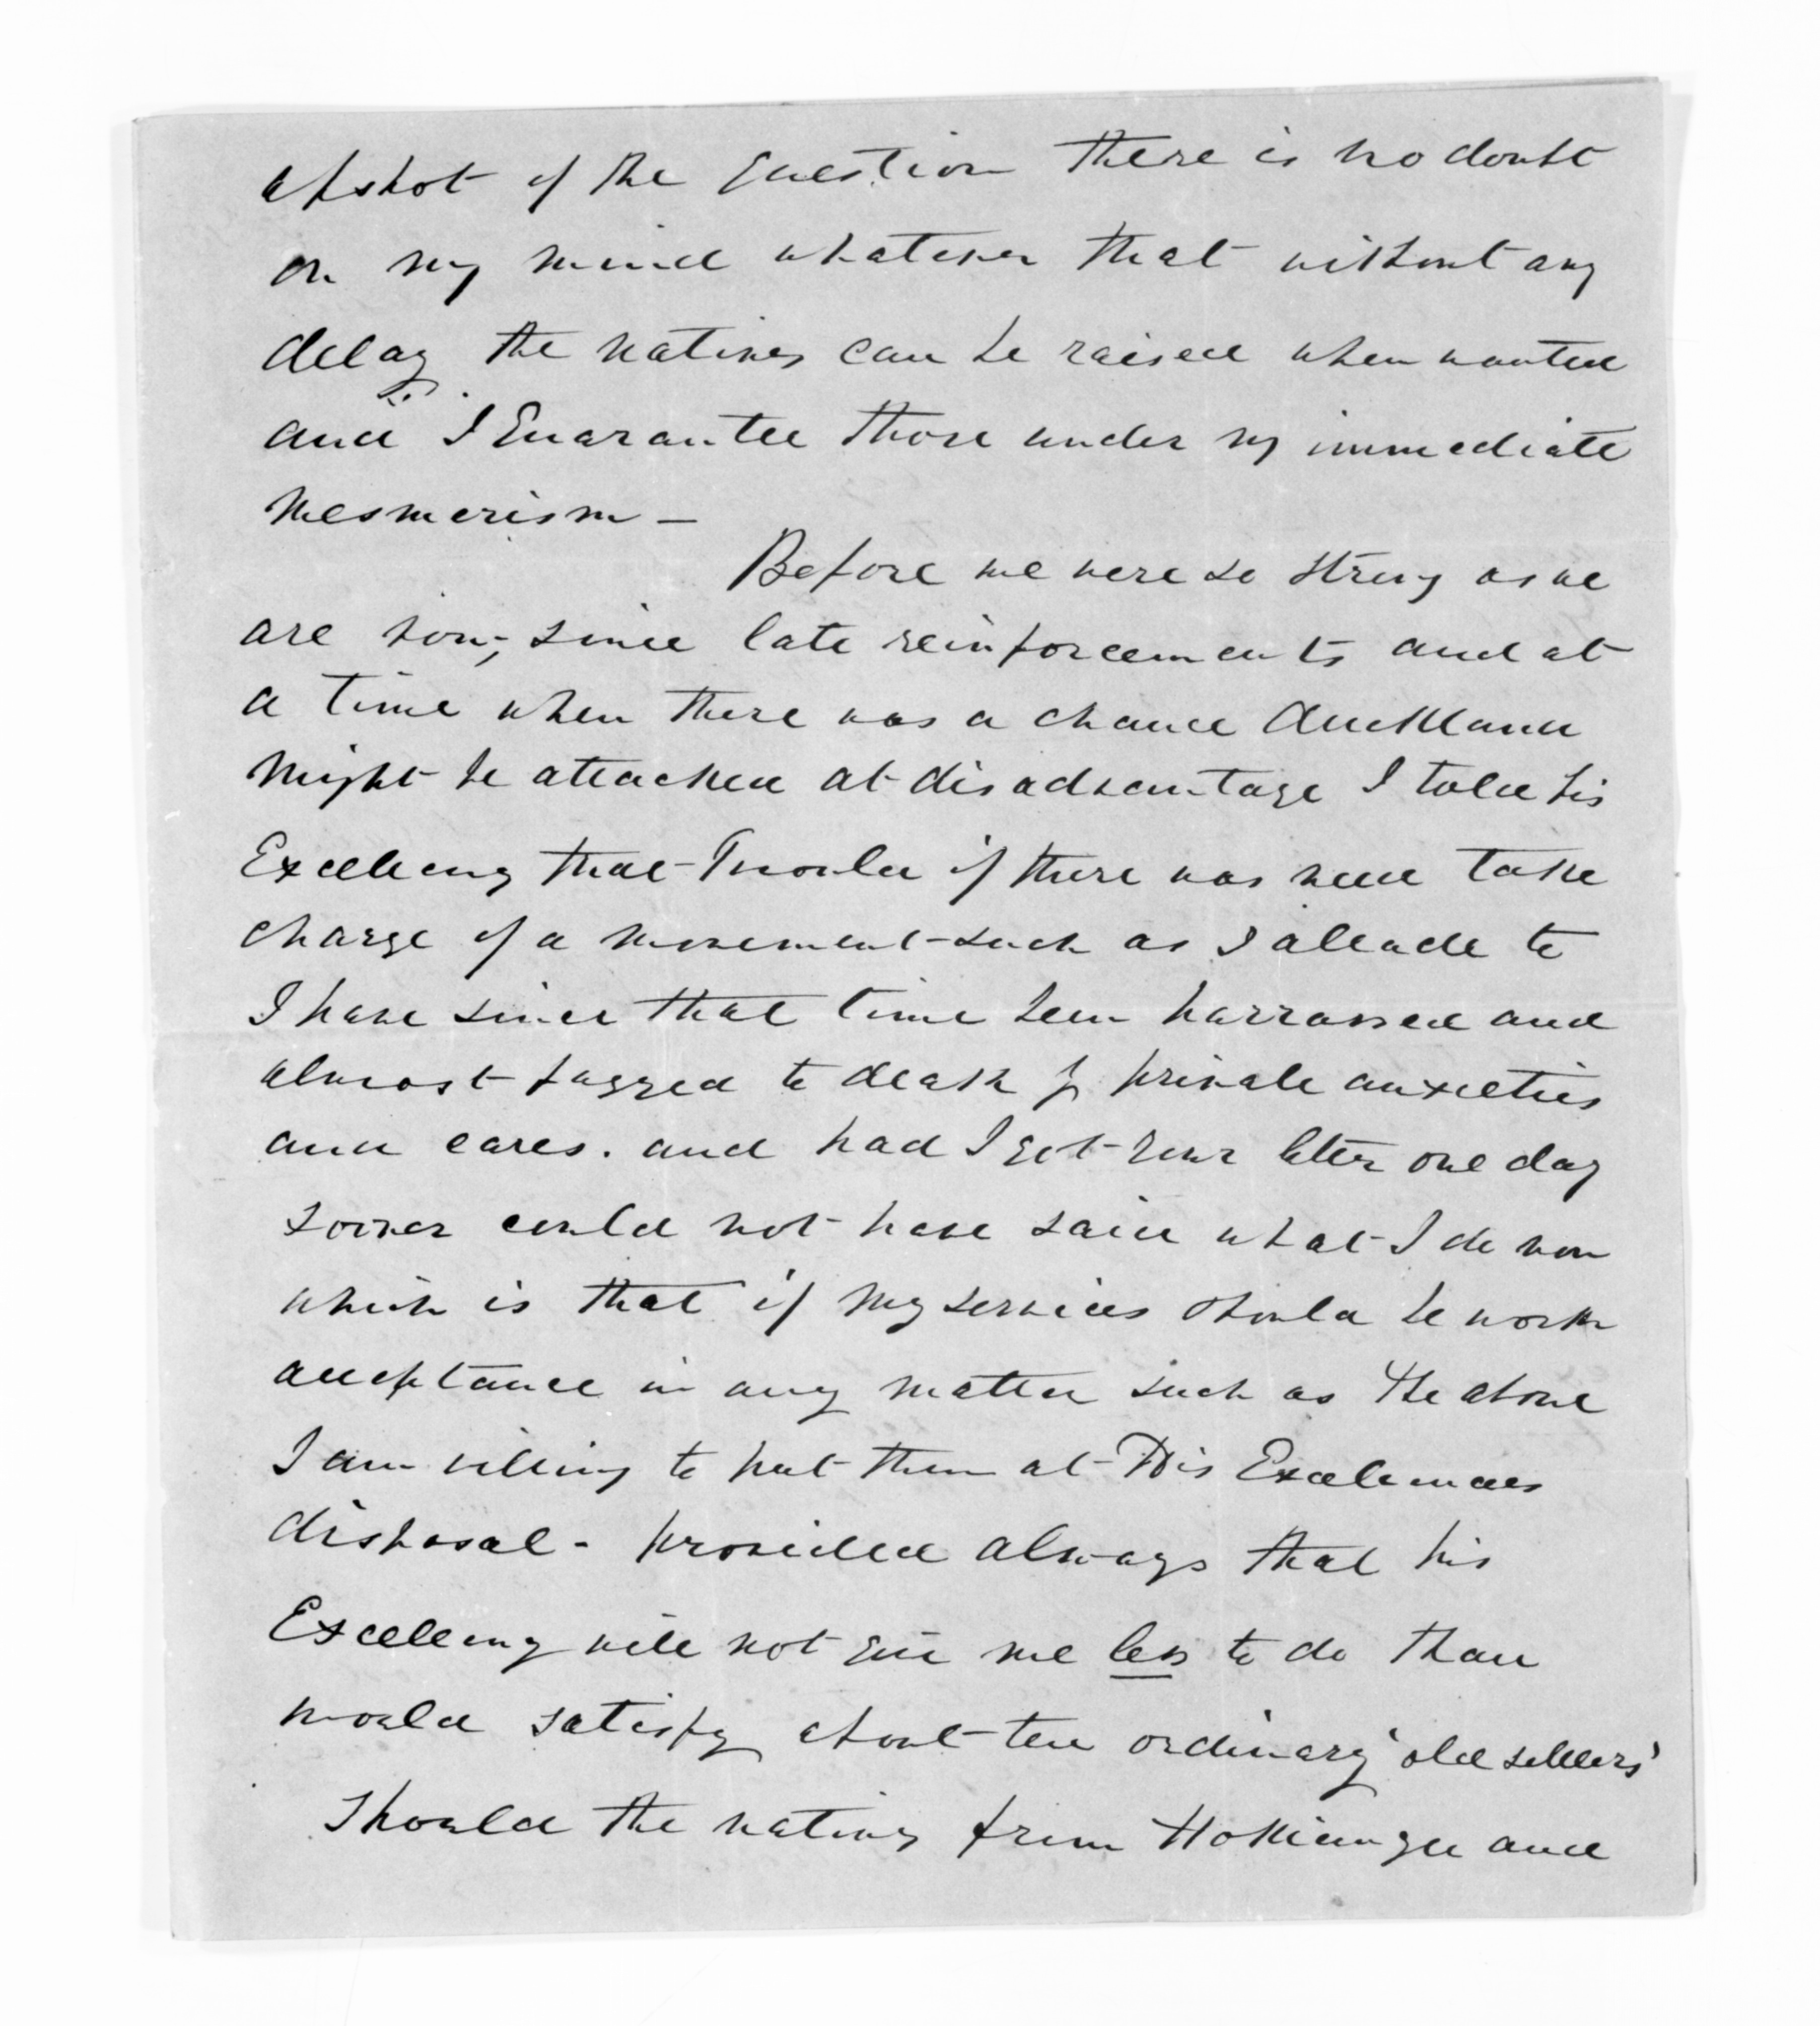 upshot of the question there is no doubt
on my mind whatever that without any
delay the natives can be raised when wanted
and I Guarantee those under my immediate
Mesmerism —
Before we were so strong as we
are now, since late reinforcements and at
a time when there was a chance Auckland
might be attacked at disadvantage I told his
Excellency that I would if there was need take
charge of a movement such as I allude to
I have since that time been harrassed and
almost fagged to death by private anxieties
and cares. and had I got your letter one day
sooner could not have said what I do now
which is that if my services should be worth
acceptance in any matter such as the above
I am willing to put them at His Excellencies
disposal - provided always that his
Excellency will not give me less to do than
would satisfy about ten ordinary 'old settlers'
Should the natives from Hokianga and